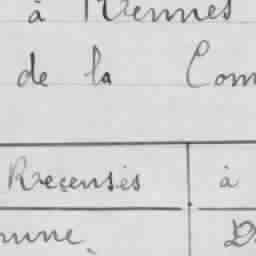 à Rennes
de la Com
Recensés à
mune